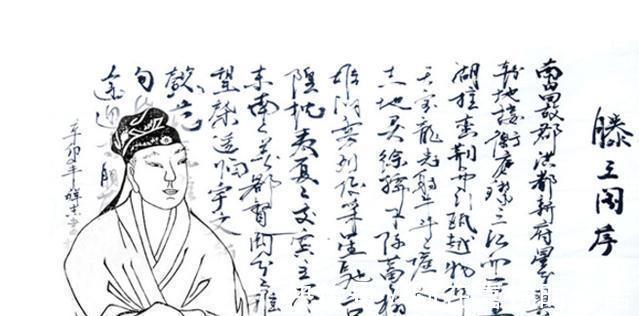 滕王阁序
南昌故郡洪都新府星分翼
轸地接衡庐襟三江而带五
湖控蛮荆而引瓯越物华
天宝龙光射斗之墟
杰地灵徐孺下陈蕃榻
雄州雾列俊采星驰台
隍枕夷夏之交宾主尽
东南之美都督阎公之雅
望棨遥临宇文
懿范
句
辛卯年